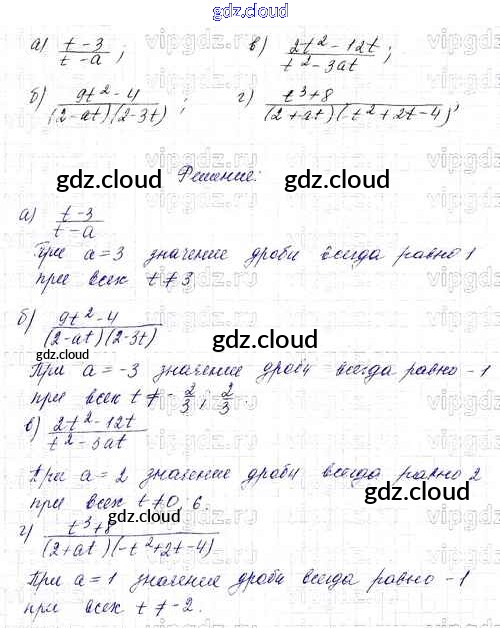 gdz.cloud
а) (t-3)/(t-a); в) (2t²-12t)/(t²-3at);
б) (9t²-4)/((2-at)(2-3t)); г) (t³+8)/((2+at)(-t²+2t-4));
Решение:
а) (t-3)/(t-a)
При a=3 значение дроби всегда равно 1
при всех t≠3
б) (9t²-4)/((2-at)(2-3t))
При a=-3 значение дроби всегда равно -1
при всех t≠-2/3; 2/3
в) (2t²-12t)/(t²-3at)
При a=2 значение дроби всегда равно 2
при всех t≠0; 6.
г) (t³+8)/((2+at)(-t²+2t-4))
При a=1 значение дроби всегда равно -1
при всех t≠-2.